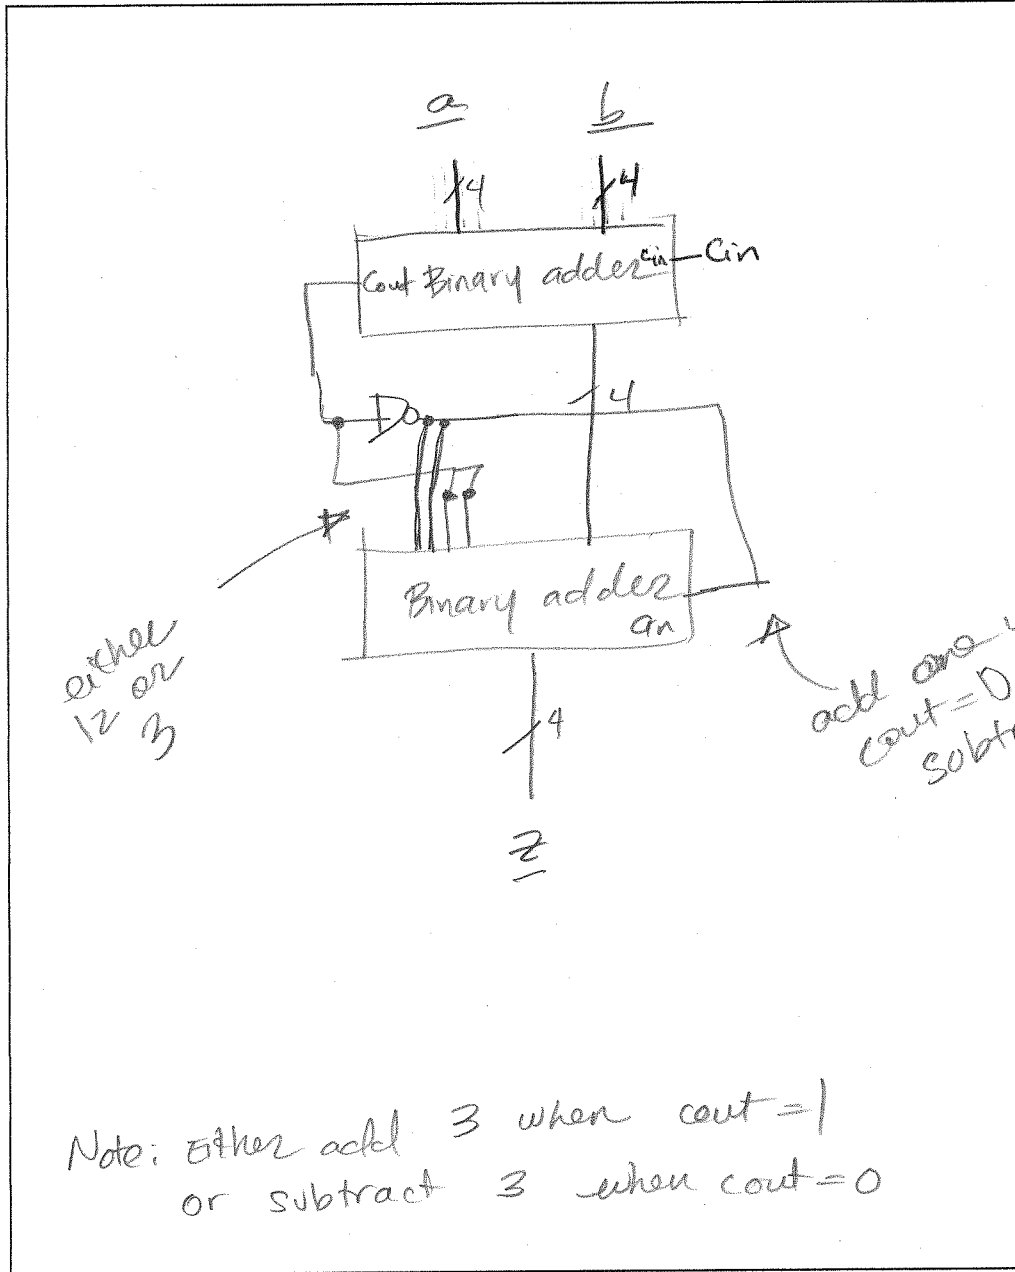 a b
4 4
Cout Binary adder cin Cin
4
Binary adder
cin
either
12 or
3
add one
cout=0
subtr
4
z
Note: Either add 3 when cout=1
or subtract 3 when cout=0